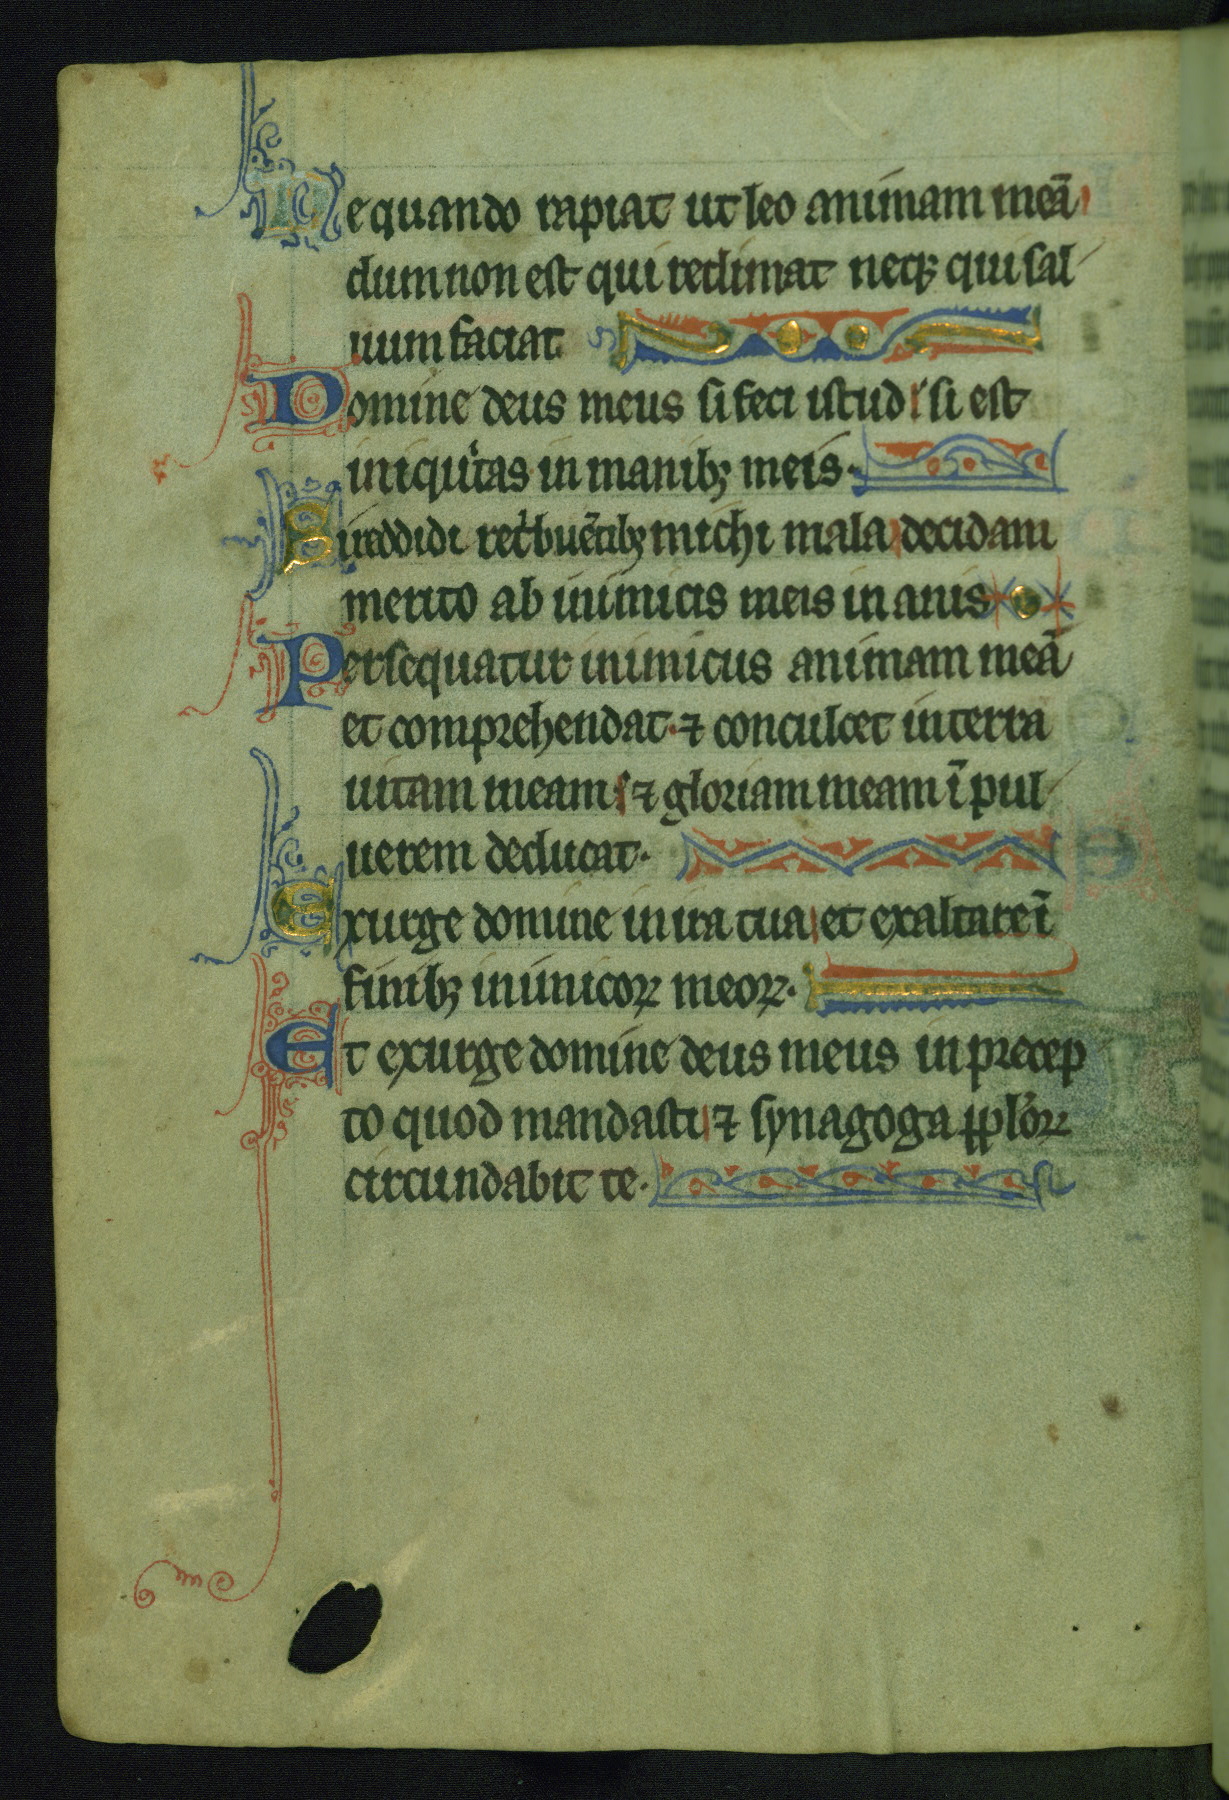 Ne quando rapiat ut leo animam meā
dum non est qui redimat neqȝ qui sal
uum faciat
Domine deus meus si feci istud si est
iniqͥtas in manibȝ meis.
Si reddidi ret̉buētibȝ michi mala decidam
merito ab inimicis meis inanis
Persequatur inimicus animam meā
et comprehendat. ⁊ conculcet in terra
uitam meam ⁊ gloriam meam ī pul
uerem deducat.
Exurge domine in ira tua et exaltare ī
finibȝ inimicoꝝ meoꝝ.
Et exurge domine deus meus in precep
to quod mandasti ⁊ synagoga pp̄loꝝ
circundabit te.